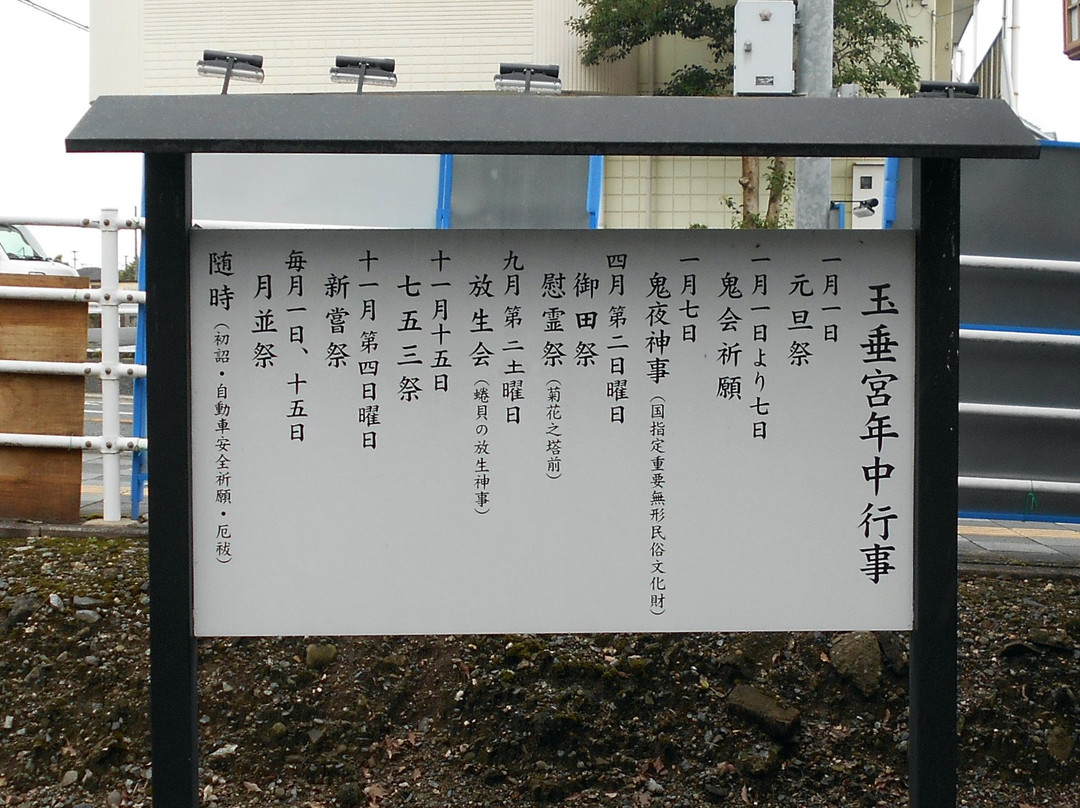 玉垂宮年中行事
一月一日
元旦祭
一月一日より七日
鬼会祈願
一月七日
鬼夜神事（国指定重要無形民俗文化財）
四月第二日曜日
御田祭
慰霊祭（菊花之塔前）
九月第二土曜日
放生会（蜷貝の放生神事）
十一月十五日
七五三祭
十一月第四日曜日
新嘗祭
毎月一日、十五日
月並祭
随時（初詣・自動車安全祈願・厄祓）